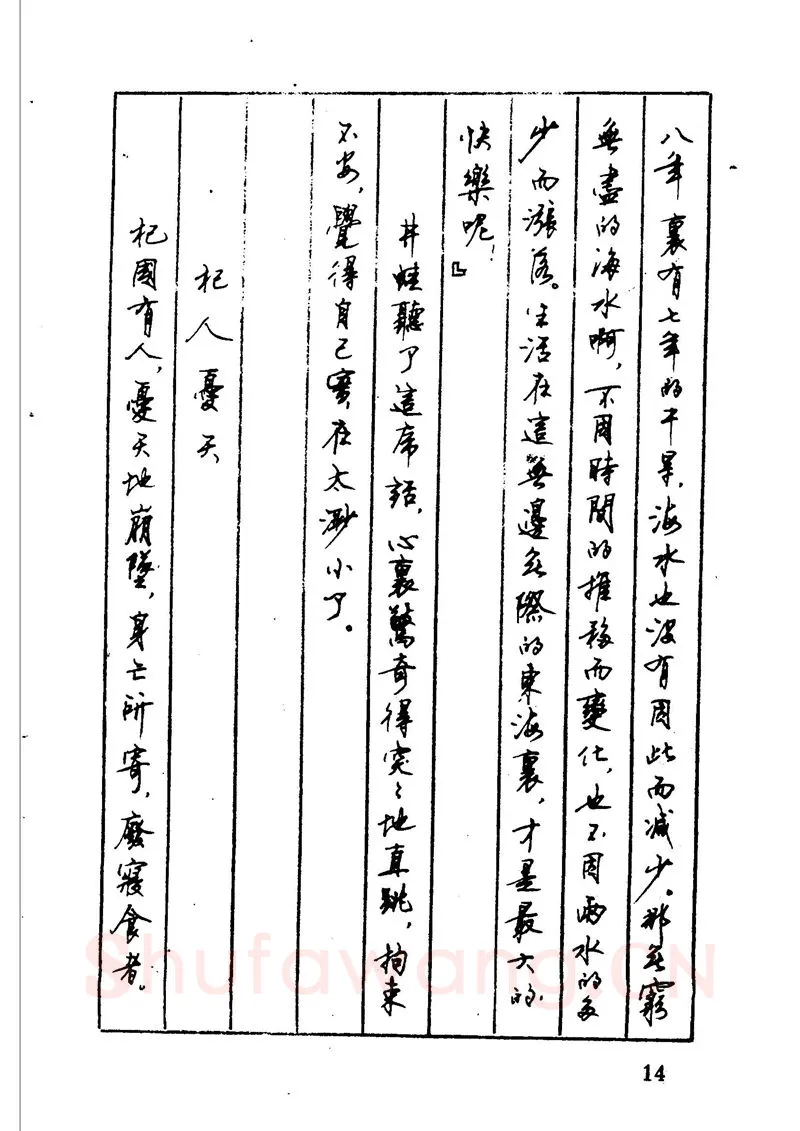 八年裏有七年的干旱，海水也沒有因此而減少。那無窮
無盡的海水啊，不因時間的推移而變化，也不因雨水的多
少而漲落。生活在這無邊無際的東海裏，才是最大的
快樂呢！』
井蛙聽了這席話，心裏驚奇得突〻地直跳，拘束
不安，覺得自己實在太渺小了。
杞人憂天
杞國有人，憂天地崩墜，身亡所寄，廢寢食者。
Shufawang.CN
14